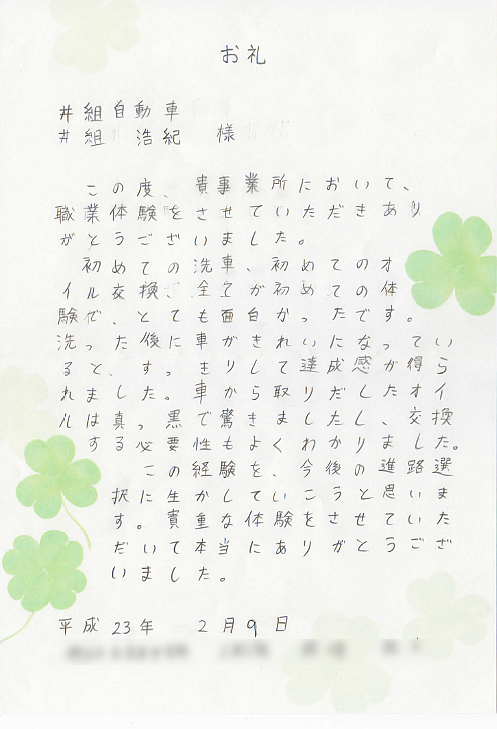 お礼
井組自動車
井組 浩紀 様
この度、貴事業所において、
職業体験をさせていただきあり
がとうございました。
初めての洗車、初めてのオ
イル交換、全てが初めての体
験で、とても面白かったです。
洗った後に車がきれいになってい
ると、すっきりして達成感が得ら
れました。車から取りだしたオイ
ルは真っ黒で驚きましたし、交換
する必要性もよくわかりました。
この経験を、今後の進路選
択に生かしていこうと思いま
す。貴重な体験をさせていた
だいて本当にありがとうござ
いました。
平成23年 2月9日